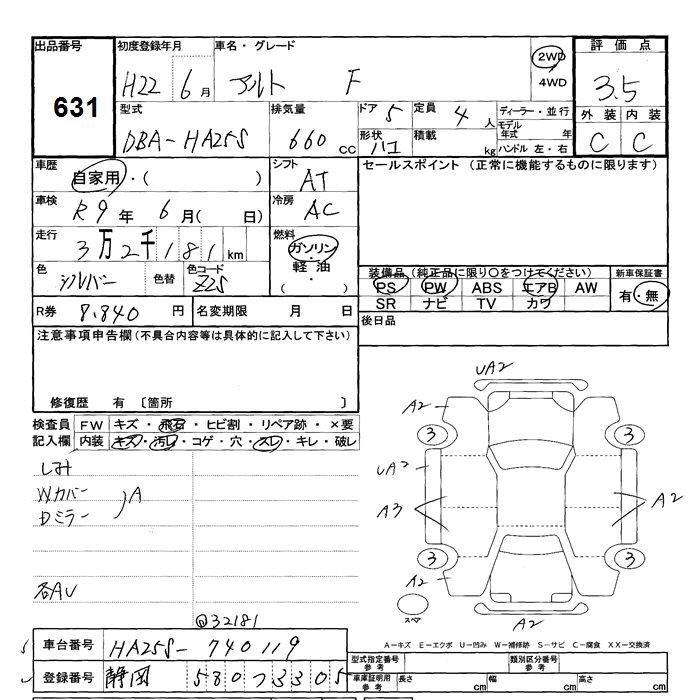 出品番号 初度登録年月 車名・グレード 2WD 評価点
631 H22 6月 アルト F 4WD 3.5
型式 排気量 ドア 5 定員 4人 ディーラー・並行 外装 内装
DBA-HA25S 660cc 形状 ハコ 積載 kg モデル年式 年 ハンドル 左・右 C C
車歴 自家用・( ) シフト AT セールスポイント (正常に機能するものに限ります)
車検 R9年 6月( 日) 冷房 AC
走行 3万2千181km 燃料 ガソリン・軽油 ( )
色 シルバー 色替 色コード Z2S 装備品 (純正品に限り○をつけてください) 新車保証書
PS PW ABS エアB AW 有・無
SR ナビ TV カワ
R券 8,840円 名変期限 月 日 後日品
注意事項申告欄(不具合内容等は具体的に記入して下さい)
修復歴 有 〔箇所 〕
検査員 FW キズ・飛石・ヒビ割・リペア跡・×要
記入欄 内装 キズ・汚れ・コゲ・穴・スレ・キレ・破レ
しみ
Wカバー A
Dミラー
各AU
@32181
UA2
A2
3 3
UA2
A3 A2
3 3
A2
スペア A2
A-キズ E-エクボ U-凹み W-補修跡 S-サビ C-腐食 XX-交換済
車台番号 HA25S-740119 型式指定番号 参考 類別区分番号 参考
登録番号 静岡 580 ワ 3305 車庫証明用 参考 長さ cm 幅 cm 高さ cm